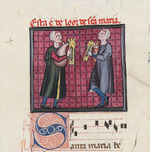 Esta é de loor de scã maria.
Santa maria de